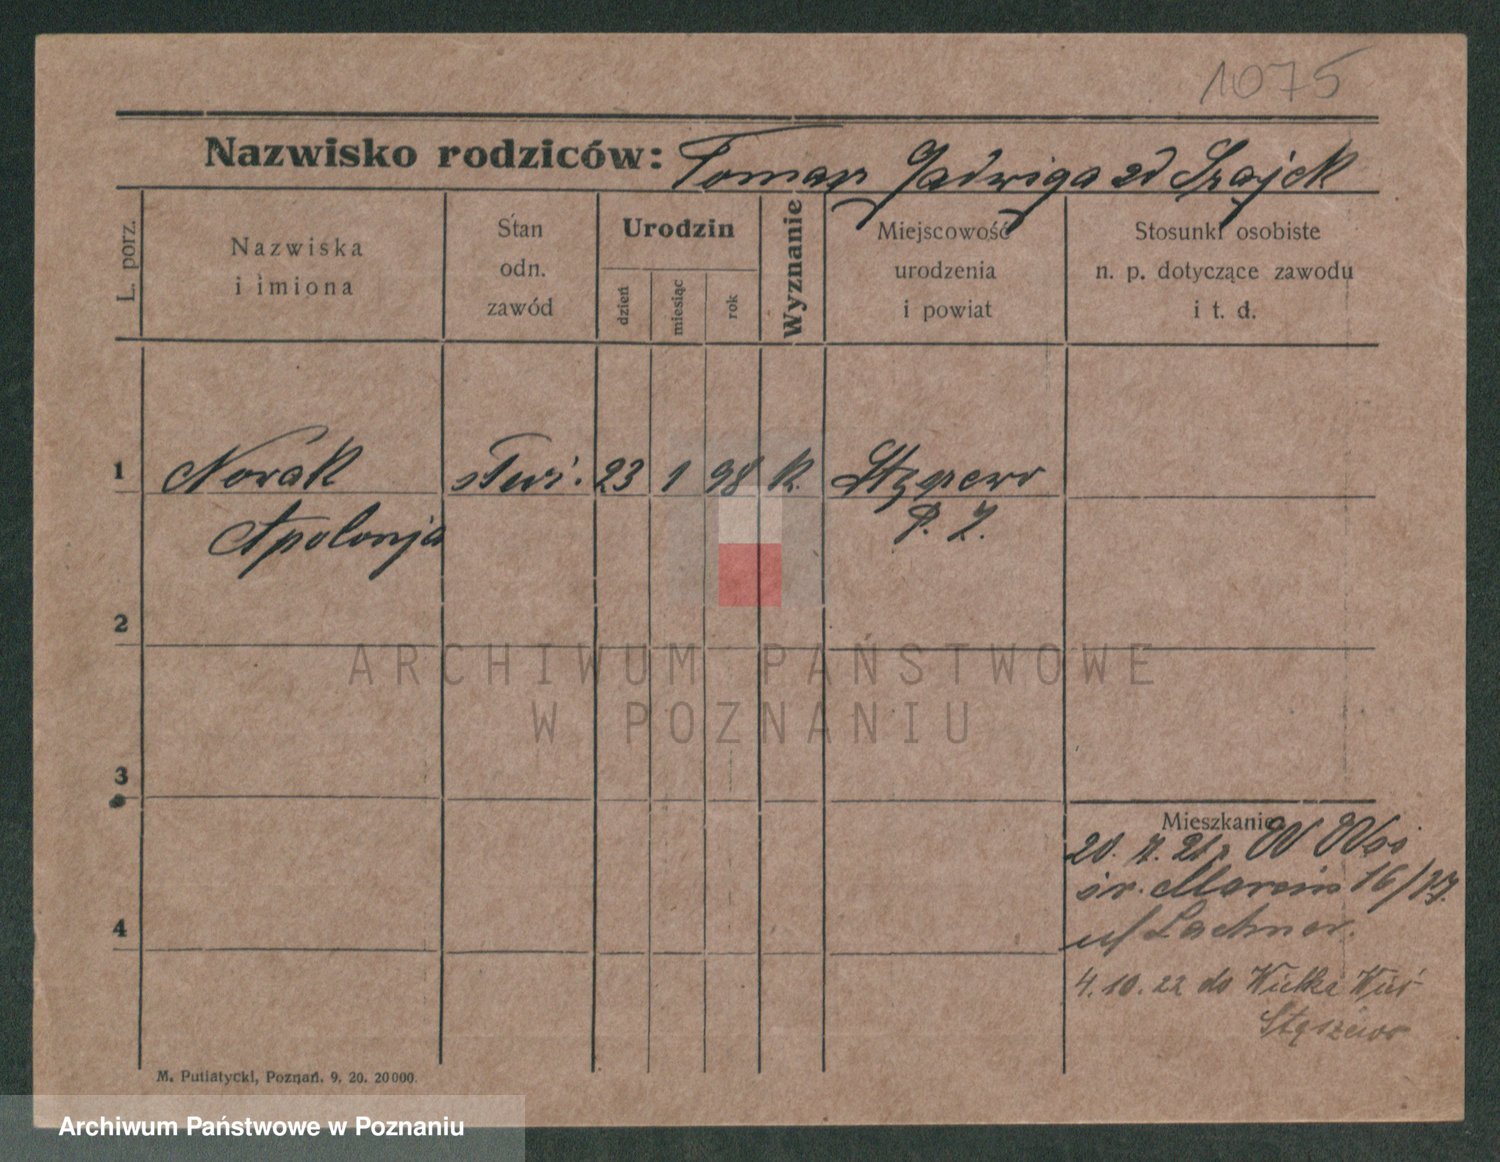 1075
Nazwisko rodziców: Tomasz Jadwiga zd Szajek
L. porz.
Nazwiska
i imiona
Stan
odn.
zawód
Urodzin
dzień
miesiąc
rok
Wyznanie
Miejscowość
urodzenia
i powiat
Stosunki osobiste
n. p. dotyczące zawodu
i t. d.
1 Nowak służ. 23 1 98 k.
Apolonja
2
ARCHIWUM PAŃSTWOWE
W POZNANIU
3
Mieszkanie:
20. 7. 21
św. Marcin 16/17
u/ Lachner.
4
4. 10. 22 do Wielka Wieś
Stęszewo
M. Putiatycki, Poznań. 9. 20. 20000.
Archiwum Państwowe w Poznaniu